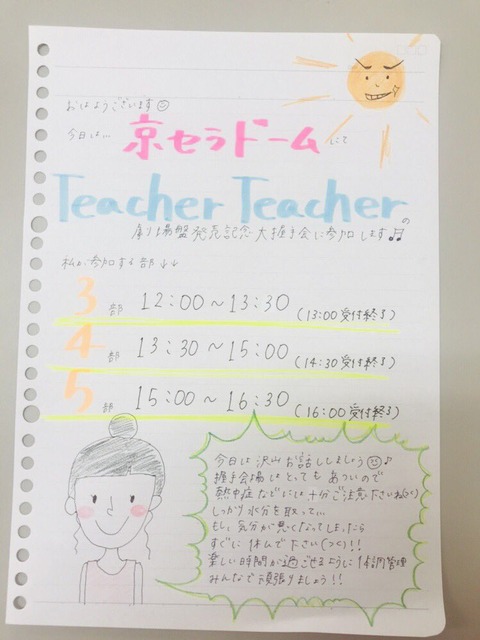 おはようございます☺
今日は… 京セラドーム にて
Teacher Teacher の
劇場盤発売記念大握手会に参加します♬
私が参加する部↓↓
3部 12:00～13:30 (13:00受付終了)
4部 13:30～15:00 (14:30受付終了)
5部 15:00～16:30 (16:00受付終了)
今日は沢山お話ししましょう☺♪
握手会場はとってもあついので
熱中症などには十分ご注意下さいね
しっかり水分を取って…
もし、気分が悪くなってしまったら
すぐに休んで下さい(つく)!!
楽しい時間が過ごせるように体調管理
みんなで頑張りましょう!!